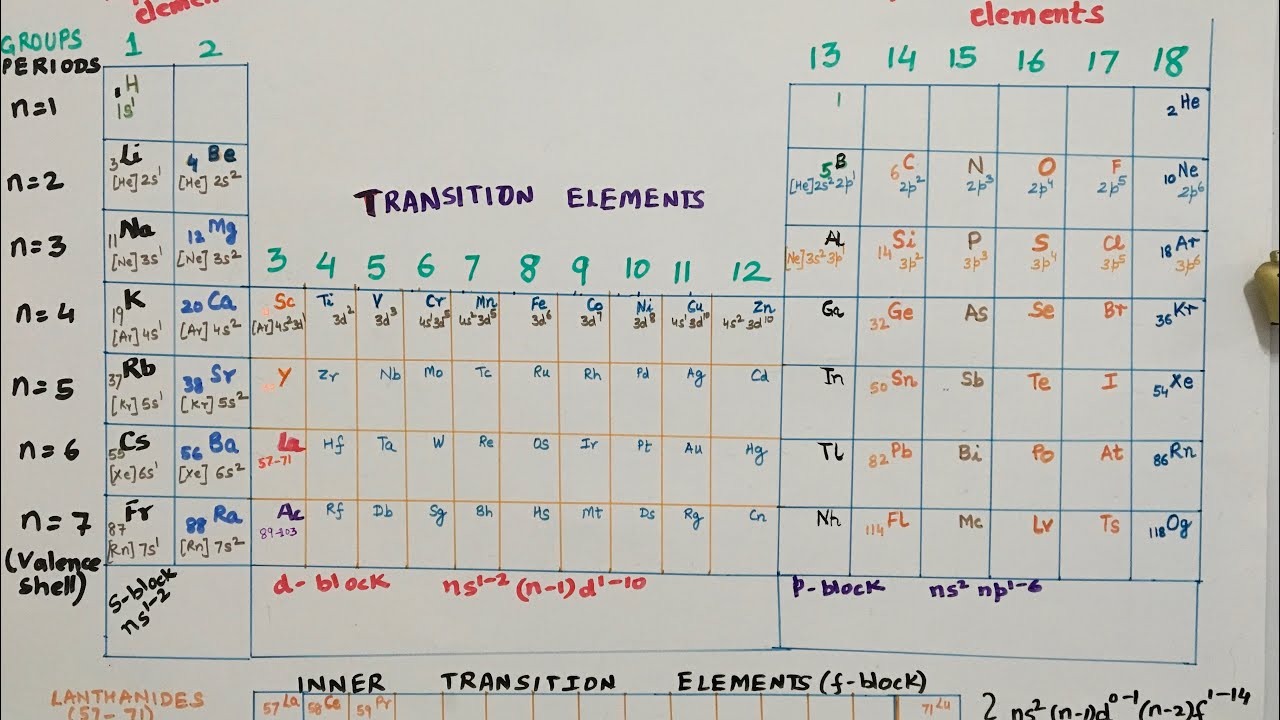 elemen
elements
GROUPS 1 2 13 14 15 16 17 18
PERIODS
n=1 H 1s¹ 1 ₂He
n=2 ₃Li [He]2s¹ ₄Be [He] 2s² ₅B [He]2s²2p¹ ₆C 2p² N 2p³ O 2p⁴ F 2p⁵ ₁₀Ne 2p⁶
TRANSITION ELEMENTS
n=3 ₁₁Na [Ne]3s¹ ₁₂Mg [Ne] 3s² Al [Ne]3s²3p¹ ₁₄Si 3p² P 3p³ S 3p⁴ Cl 3p⁵ ₁₈Ar 3p⁶
3 4 5 6 7 8 9 10 11 12
n=4 ₁₉K [Ar]4s¹ ₂₀Ca [Ar]4s² Sc [Ar]4s²3d¹ Ti 3d² V 3d³ Cr 4s¹3d⁵ Mn 4s²3d⁵ Fe 3d⁶ Co 3d⁷ Ni 3d⁸ Cu 4s¹3d¹⁰ Zn 4s² 3d¹⁰ Ga ₃₂Ge As Se Br ₃₆Kr
n=5 ₃₇Rb [Kr]5s¹ ₃₈Sr [Kr]5s² Y Zr Nb Mo Tc Ru Rh Pd Ag Cd In ₅₀Sn Sb Te I ₅₄Xe
n=6 ₅₅Cs [Xe]6s¹ ₅₆Ba [Xe] 6s² La 57-71 Hf Ta W Re Os Ir Pt Au Hg Tl ₈₂Pb Bi Po At ₈₆Rn
n=7 ₈₇Fr [Rn]7s¹ ₈₈Ra [Rn] 7s² Ac 89-103 Rf Db Sg Bh Hs Mt Ds Rg Cn Nh ₁₁₄FL Mc Lv Ts ₁₁₈Og
(Valence
shell)
s-block
ns¹⁻²
d-block ns¹⁻² (n-1)d¹⁻¹⁰
p-block ns² np¹⁻⁶
INNER TRANSITION ELEMENTS (f-block)
LANTHANIDES
(57-71)
₅₇La ₅₈Ce ₅₉Pr ₇₁Lu
ns²(n-1)d⁰⁻¹(n-2)f¹⁻¹⁴